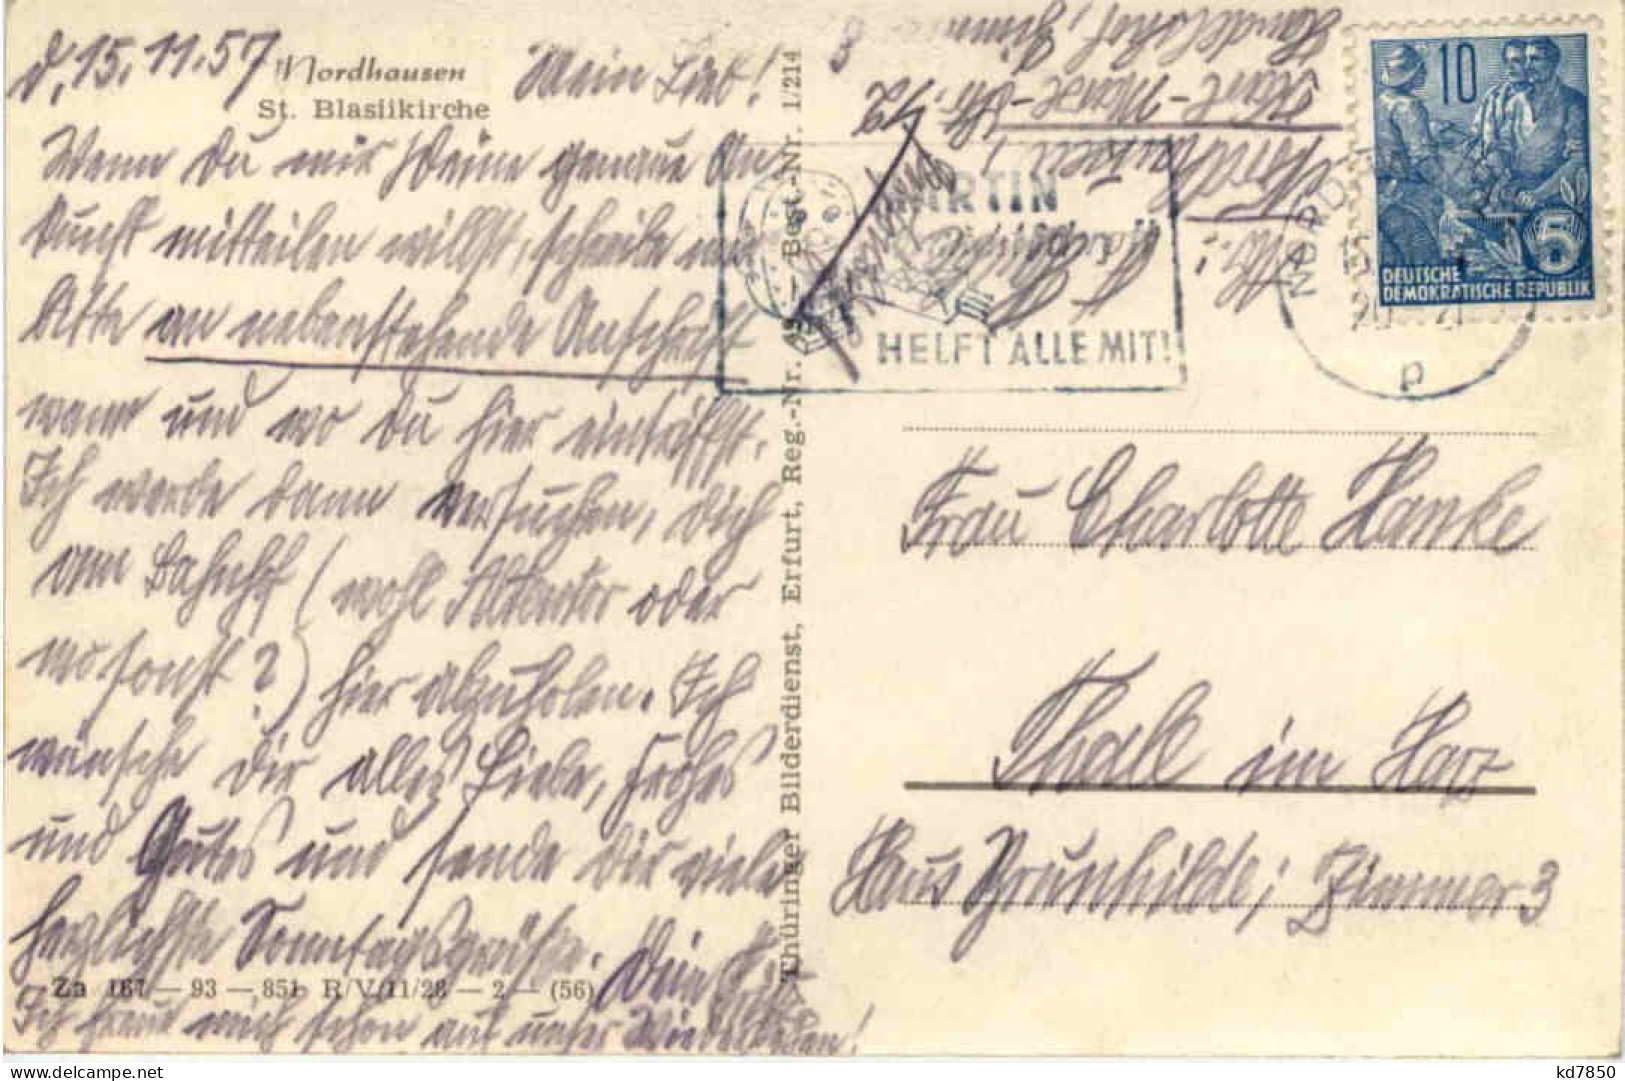 d. 15.11.57
Nordhausen
St. Blasiikirche
Mein Lieb!
Wenn Du mir Deine genaue An-
kunft mitteilen willst, schreibe mir
bitte an nebenstehende Anschrift
wann und wo Du hier eintriffst.
Ich werde dann versuchen, Dich
am Bahnhof (wohl Altentor oder
wo sonst?) hier abzuholen. Ich
wünsche Dir alles Liebe, Frohes
und Gutes und sende Dir viele
herzlichste Sonntagsgrüße.
Dein
Za 167 — 93 — 851 R/V/11/28 — 2 — (56)
Ich freue mich schon auf unser Wiedersehen!
Thüringer Bilderdienst, Erfurt, Reg.-Nr. — Best.-Nr. 1/214
Nordhausen,
Karl-Marx-Str.
MARTIN
HELFT ALLE MIT!
10
5
DEUTSCHE
DEMOKRATISCHE REPUBLIK
p
Frau Charlotte Hanke
Thale im Harz
Haus Brunhilde; Zimmer 3
kd7850